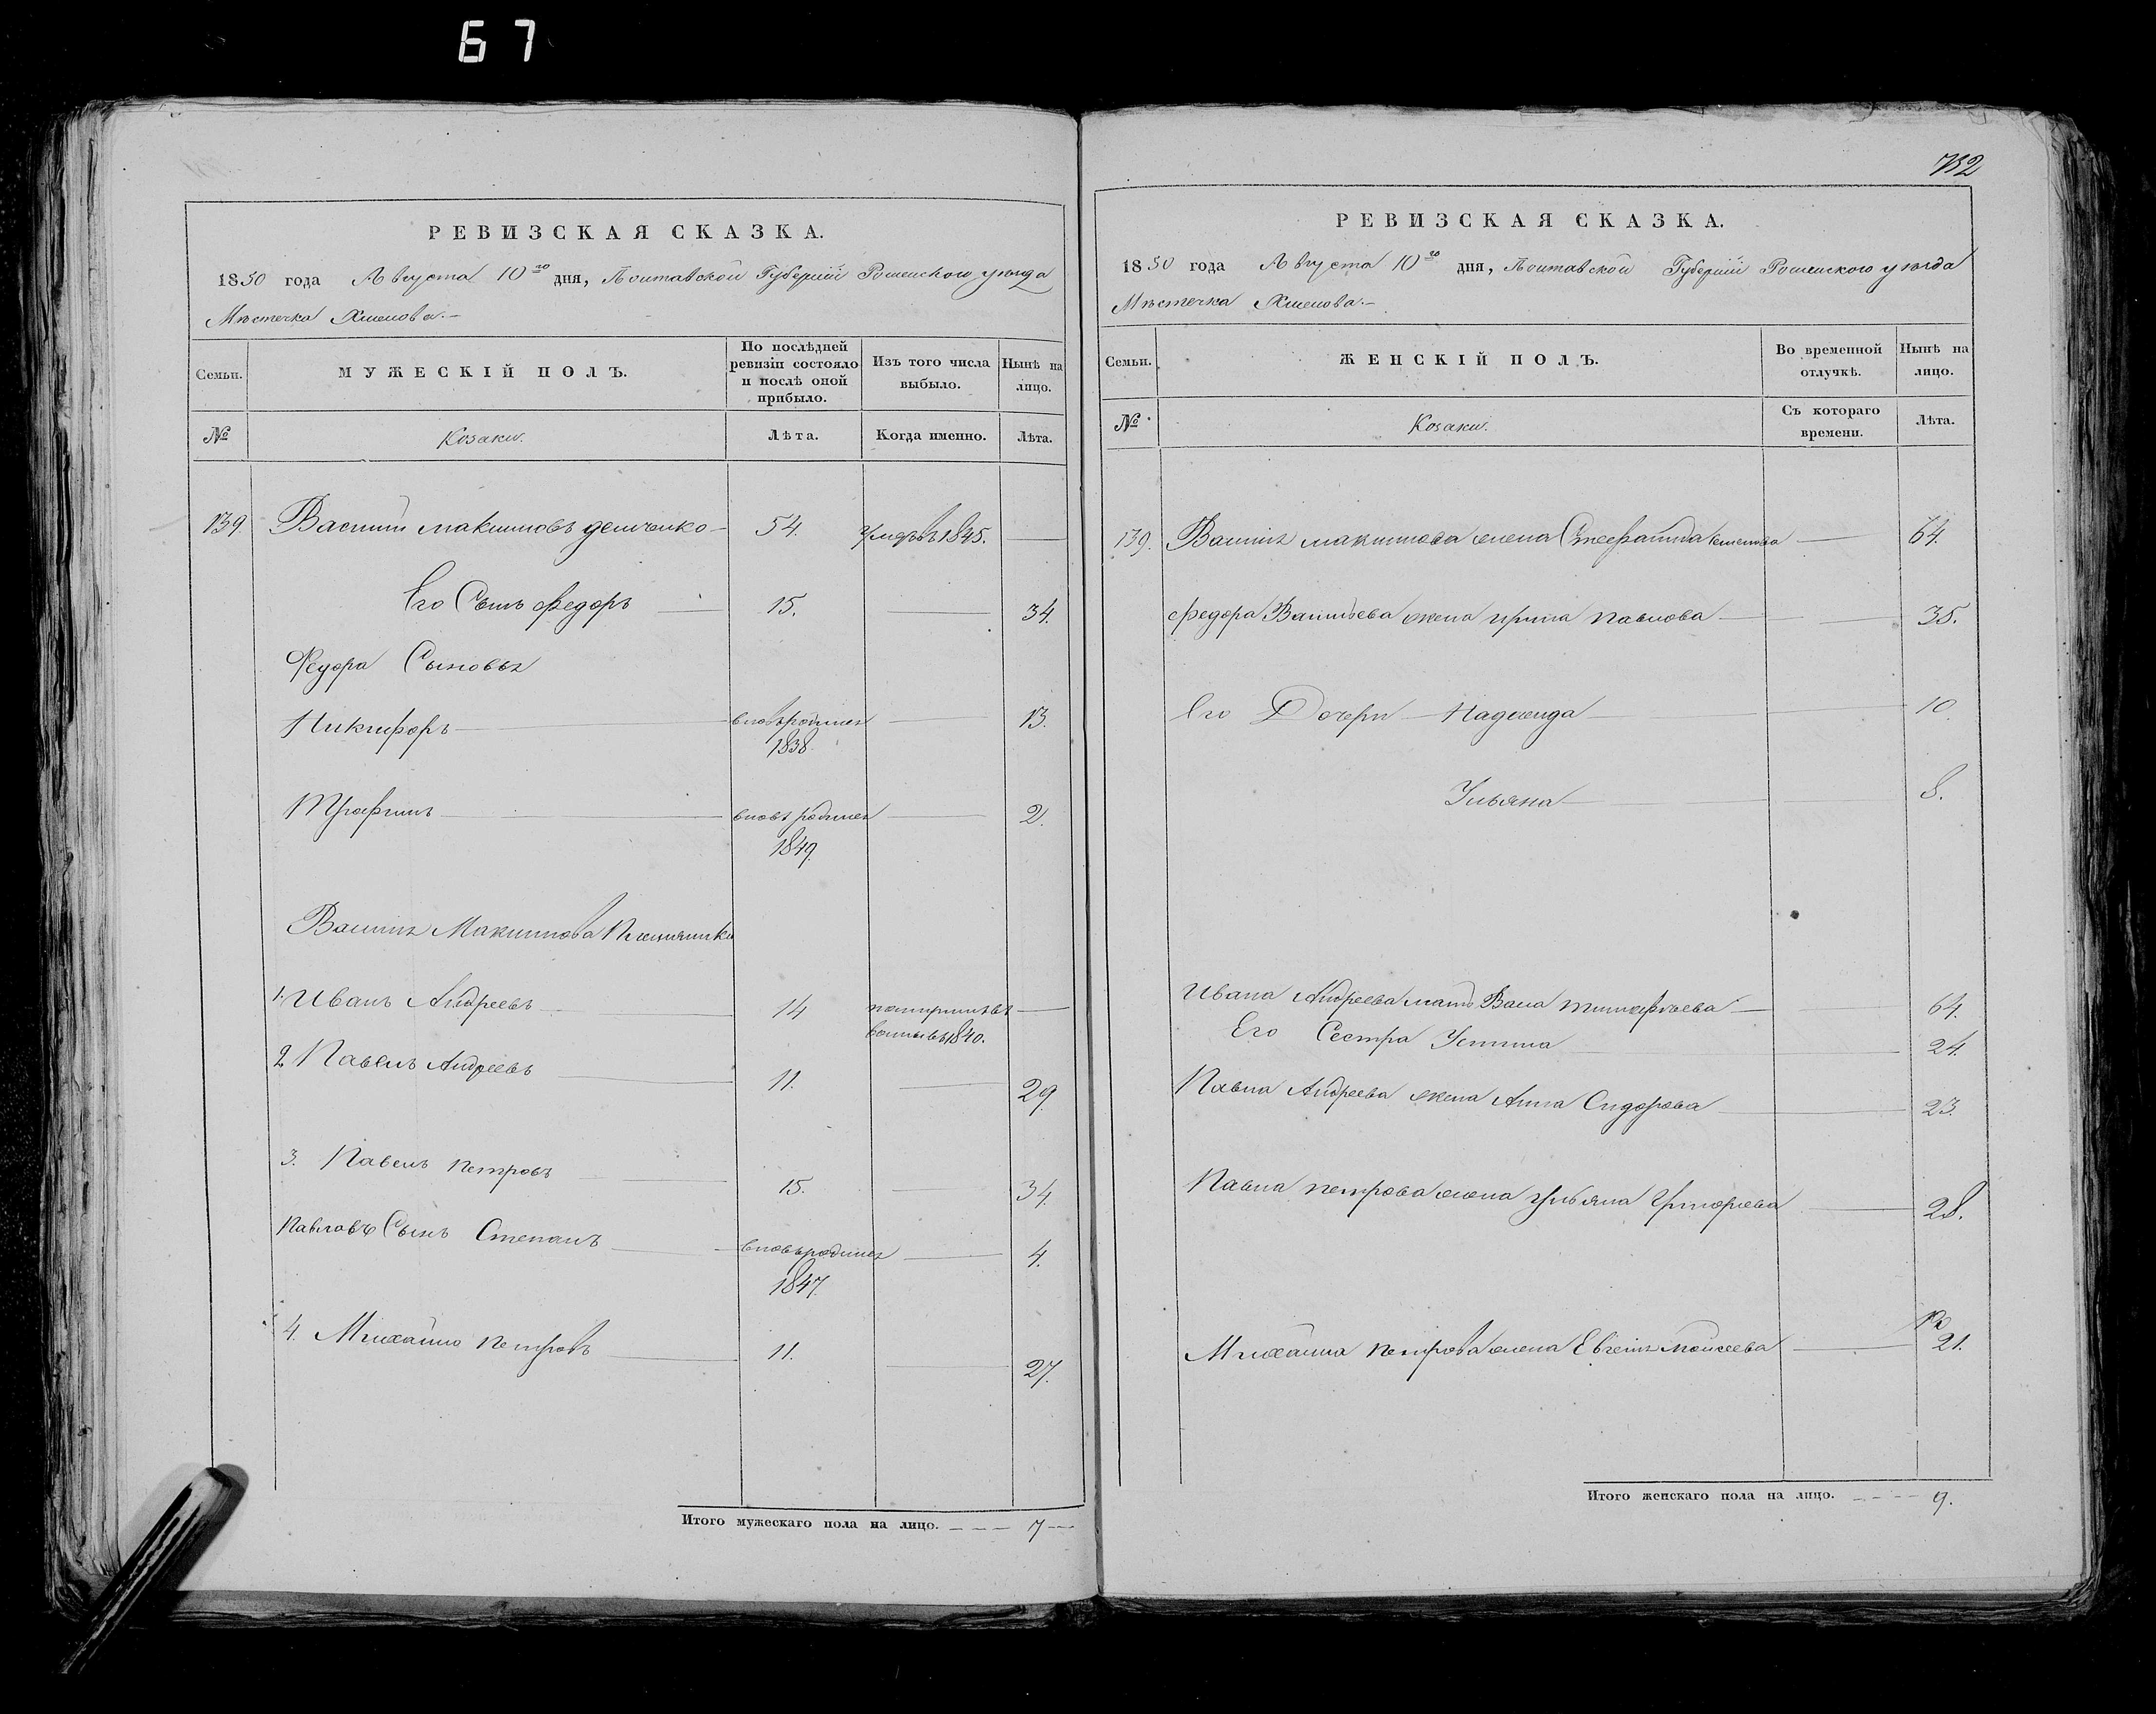 67
РЕВИЗСКАЯ СКАЗКА.
1850 года Августа 10го дня, Полтавской Губернии Роменского уезда
Местечка Хмелова.-
Семьи.
МУЖЕСКІЙ ПОЛЪ.
По послѣдней ревизіи состояло и послѣ оной прибыло.
Изъ того числа выбыло.
Нынѣ на лицо.
№
Козаки.
Лѣта.
Когда именно.
Лѣта.
139. Василий Максимовъ демченко 54. умеръ въ 1845.
Его Сынъ Федоръ 15. 34.
Федора Сыновья
Никифоръ вновь родился 13.
1838.
Трофимъ вновь родился 2.
1849.
Василия Максимова Племянники
1. Иванъ Андреевъ 14
въ 1840.
2. Павелъ Андреевъ 11. 29.
3. Павелъ Петровъ 15. 34.
Павловъ Сынъ Степанъ вновь родился 4.
1847.
4. Михайло Петровъ 11. 27.
Итого мужескаго пола на лицо. 7
732
РЕВИЗСКАЯ СКАЗКА.
1850 года Августа 10го дня, Полтавской Губернии Роменского уезда
Местечка Хмелова.-
Семьи.
ЖЕНСКІЙ ПОЛЪ.
Во временной отлучкѣ.
Нынѣ на лицо.
№
Козаки.
Съ котораго времени.
Лѣта.
139. Василия максимова жена Стефанида 64.
Федора Васильева жена ирина павлова 35.
Его Дочери Надежда 10.
Ульяна 8.
Ивана Андреева мать 64.
Его Сестра Устина 24.
Павла Андреева жена Анна Сидорова 23.
Павла петрова жена ульяна Григорьева 28.
Михайла петрова жена Евгения моисеева 21.
Итого женскаго пола на лицо. 9.